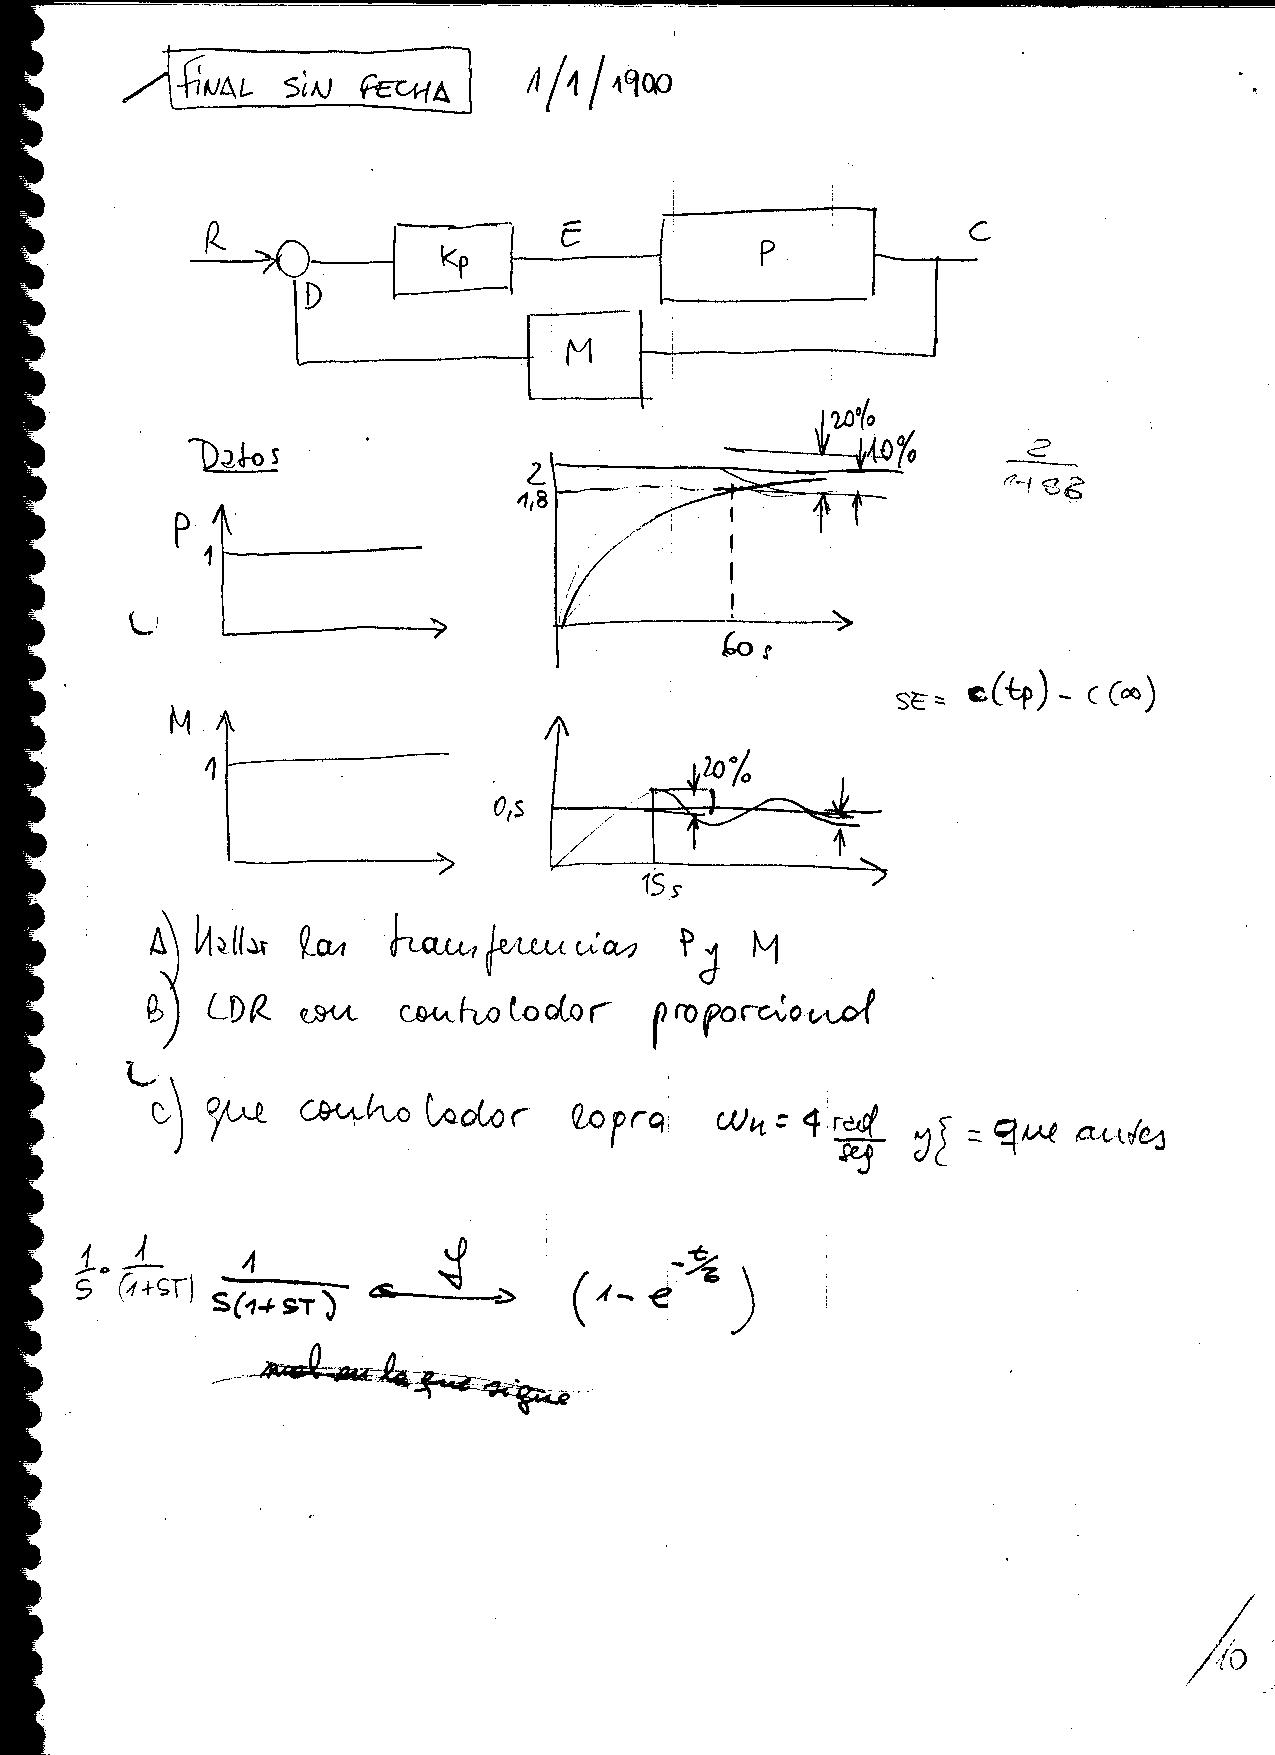 FINAL SIN FECHA 1/1/1900
R
Kp
E
P
C
D
M
Datos
20%
10%
2
1,8
P
1
60 s
SE = c(tp) - c(∞)
M
1
20%
0,5
15 s
A) Hallar las transferencias P y M
B) LDR con controlador proporcional
C) que controlador logra ωn = 4 rad/seg y ξ = que antes
1/S · 1/(1+ST) 1/S(1+ST) ℒ (1 - e^-t/τ)
mal en la que sigue
/10